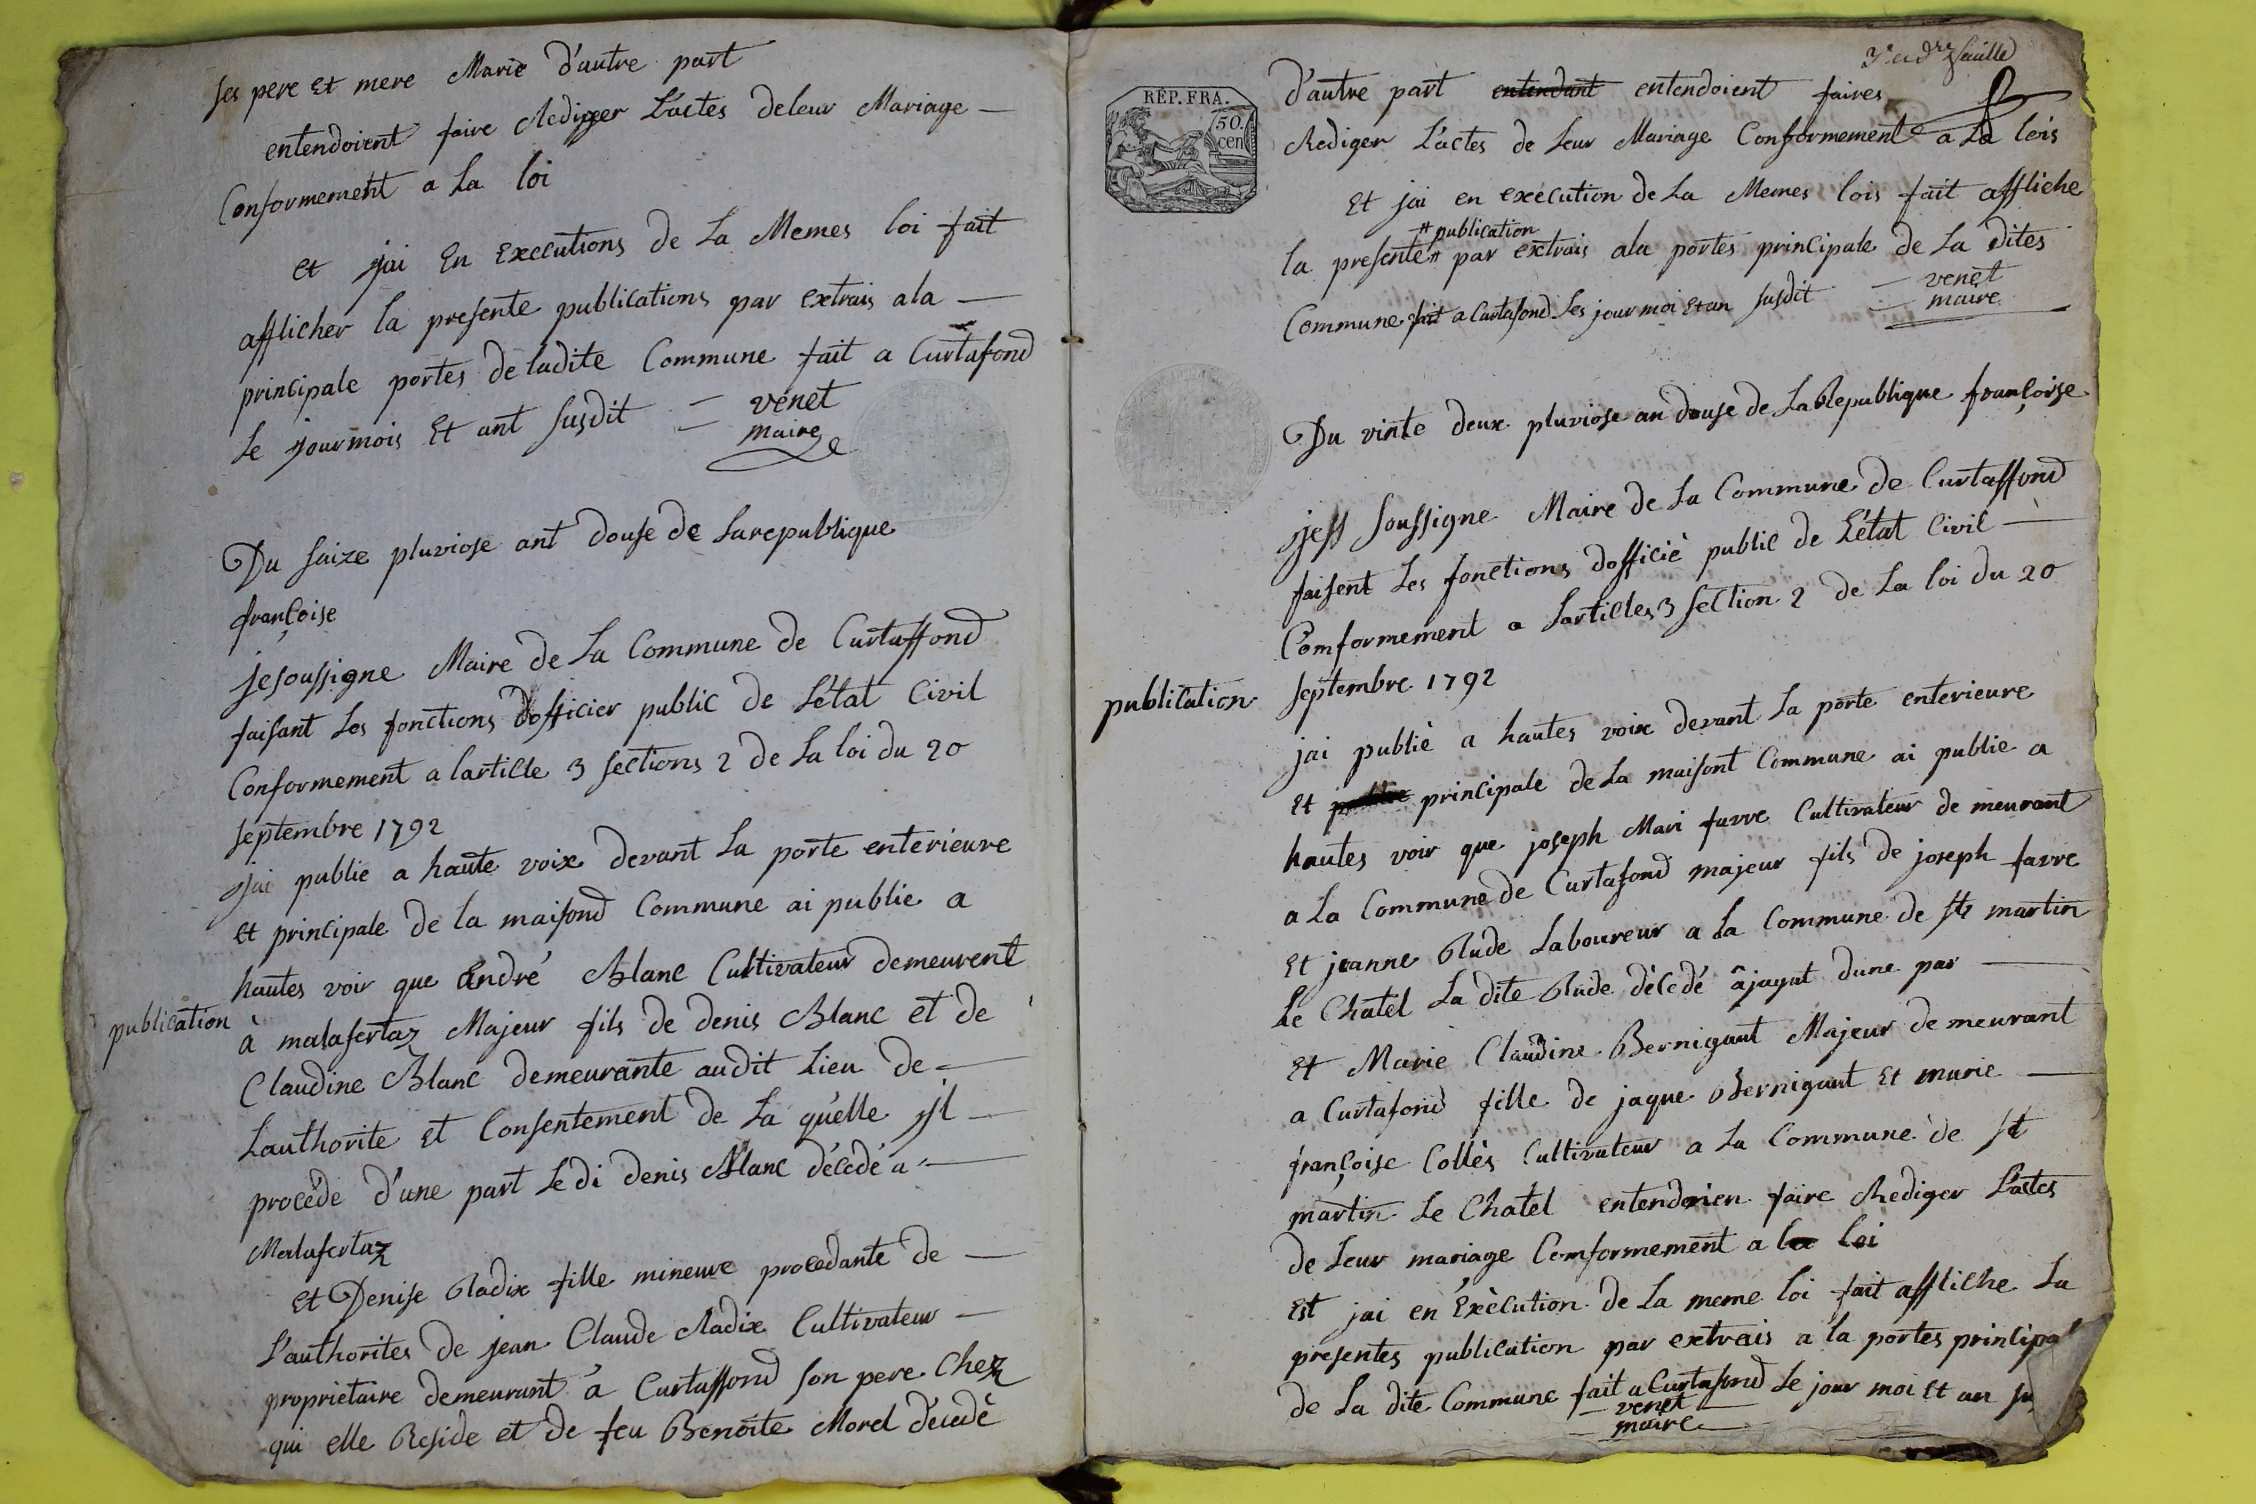 ses pere et mere Marie d'autre part
entendoient faire Rediger L'actes deleur Mariage —
Conformement a La loi
et jai En Executions de La Memes loi fait
afflicher la presente publications par extrais ala —
principale portes de ladite Commune fait a Curtafond
Le jourmois Et ant susdit = venet
maire
Du saize pluviose ant douse de Larepublique
françoise
jesoussigne Maire de La Commune de Curtaffond
faisant Les fonctions dofficier public de Létat Civil
Conformement a lartille 3 sections 2 de La loi du 20
septembre 1792
jai publie a haute voix devant La porte enterieure
et principale de la maisond Commune ai publie a
hautes voir que andré Blanc Cultivateur demeurent
publication
à malafertaz Majeur fils de denis Blanc et de
Claudine Blanc demeurante audit Lieu de —
Lauthorite et Consentement de La quelle jl —
procède d'une part Le di denis Blanc décedé a —
Malafertaz
et Denise Radix fille mineure procedante de —
L'authorites de jean Claude Radix Cultivateur —
proprietaire demeurant a Curtaffond son pere Chez
qui elle Reside et de feu Benoite Morel décedè
3e et dre faille
RÉP. FRA.
50.
cen
d'autre part entendant entendoient faires
Rediger L'actes de Leur Mariage Conformement a La lois
Et jai en execution de La Memes lois fait affliche
# publication
la presente # par extrais ala portes principale de La dites
Commune fait a Curtafond Les jour moi et an susdit = venet
maire
Du vinte deux pluviose an douse de LaRepublique françoise
jess soussigne Maire de La Commune de Curtaffond
faisent Les fonctions dofficiè public de L'état Civil —
Comformement a Lartilles 3 section 2 de La loi du 20
publication
septembre 1792
jai publiè a hautes voix devant La porte enterieure
et principale de La maisont Commune ai publie a
hautes voir que joseph Mari favre Cultivateur de meurant
a La Commune de Curtafond majeur fils de joseph favre
et jeanne Rude Laboureur a La Commune de st martin
Le Chatel La dite Rude décedé âjayat dune par —
et Marie Claudine Bernigaut Majeur de meurant
a Curtafond fille de jaque Bernigaut et marie —
françoise Collès Cultivateur a La Commune de st
martin Le Chatel entendoien faire Rediger L'actes
de Leur mariage Comformement a la loi
Est jai en Éxècution de La meme loi fait affliche La
presentes publication par extrais a la portes principal
de La dite Commune fait a Curtafond Le jour moi et an su
— venet
— maire —